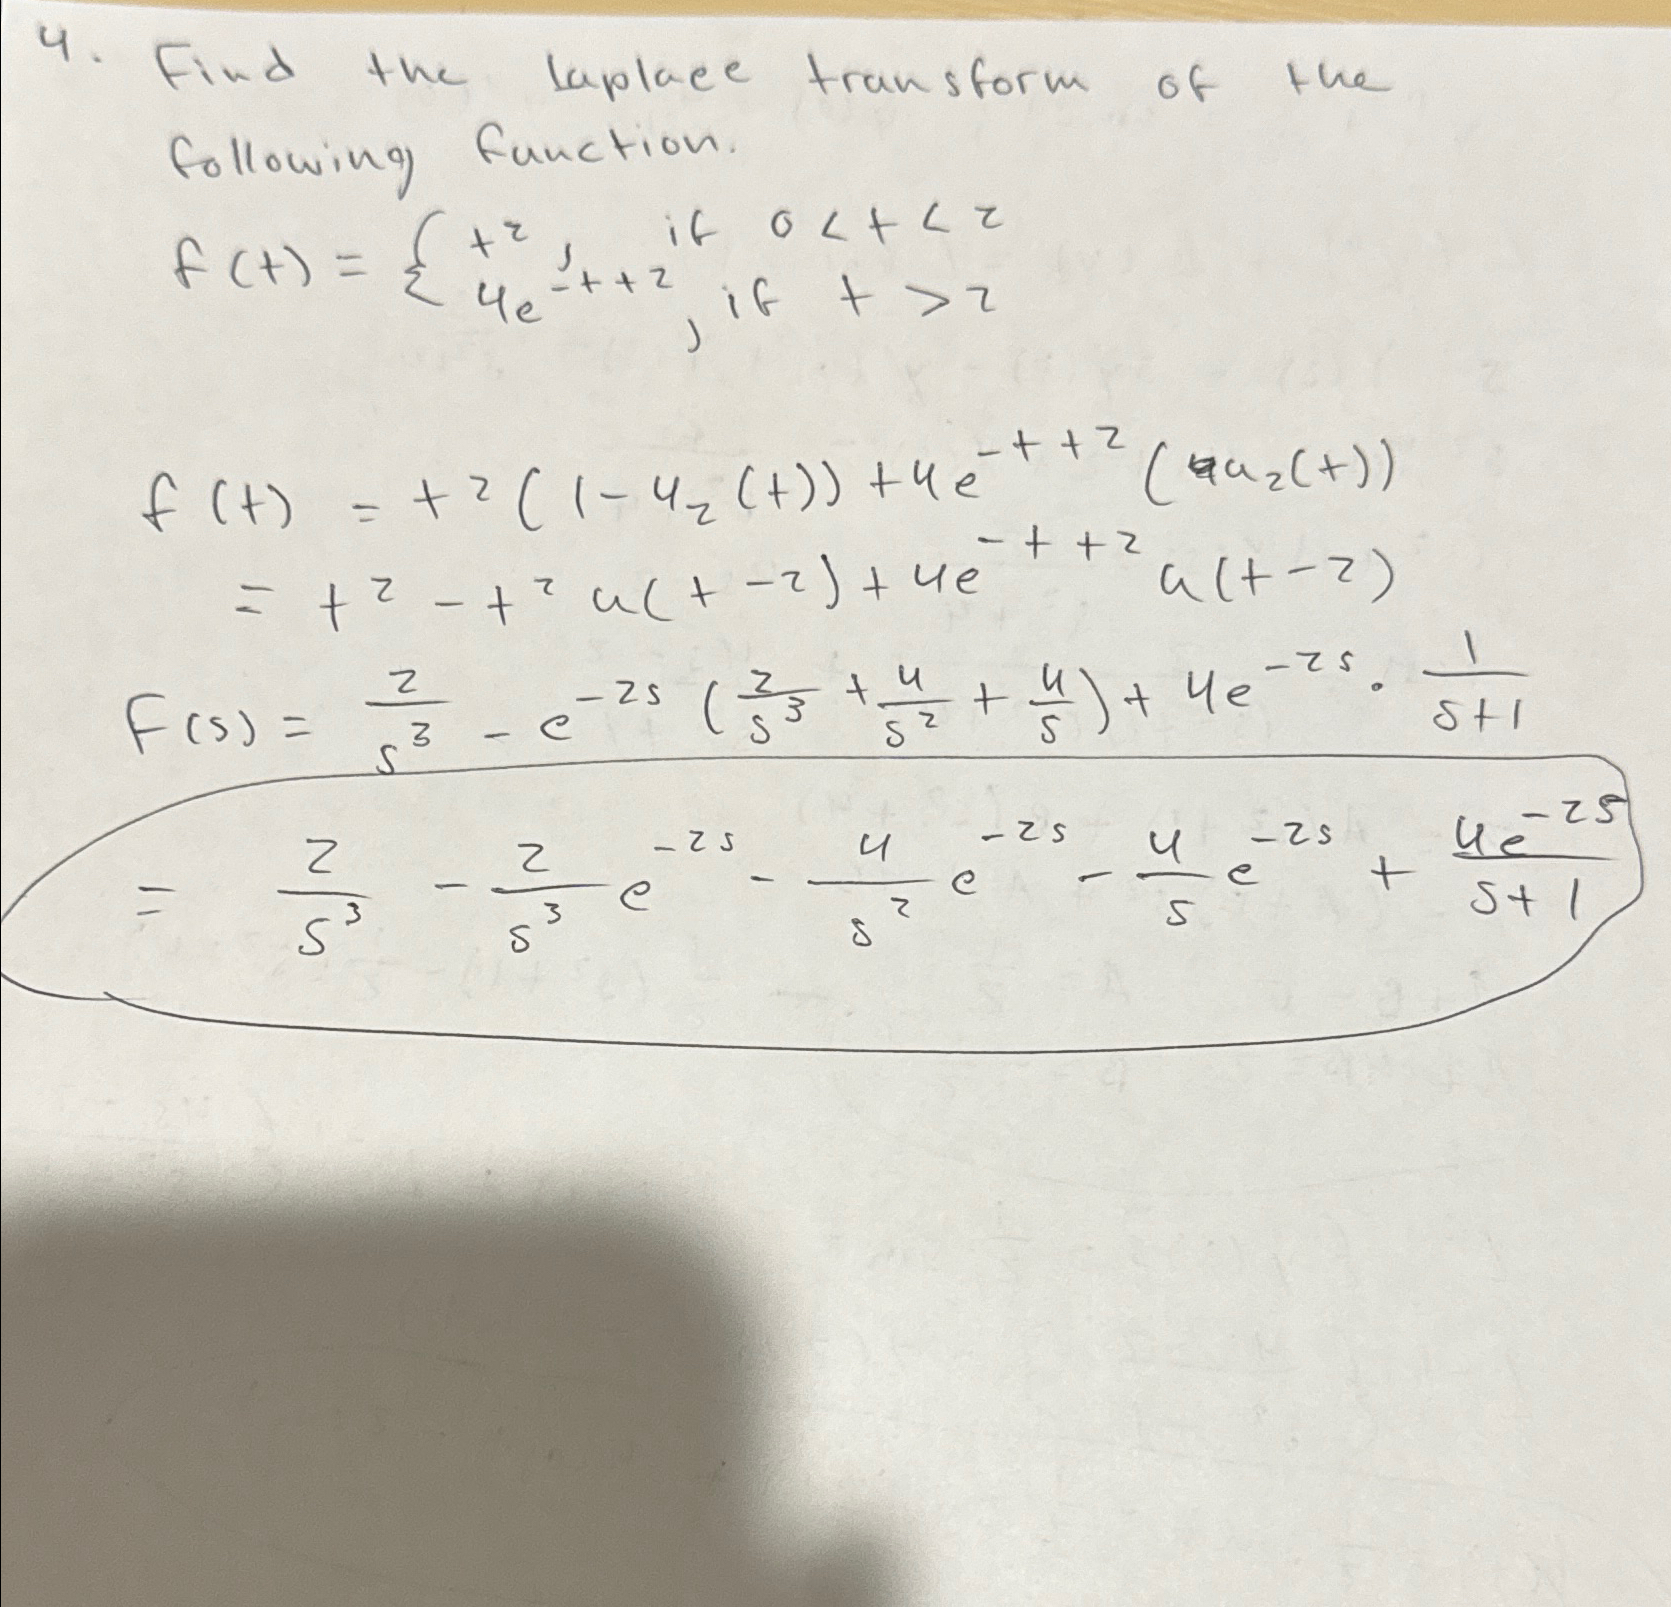 4. Find the Laplace transform of the
following function.
f(t) = { t², if 0 < t < 2
4e^{-t+2}, if t > 2
f(t) = t²(1 - u₂(t)) + 4e^{-t+2} (u₂(t))
= t² - t² u(t-2) + 4e^{-t+2} u(t-2)
F(s) = 2/s³ - e^{-2s} (2/s³ + 4/s² + 4/s) + 4e^{-2s} · 1/(s+1)
= 2/s³ - 2/s³ e^{-2s} - 4/s² e^{-2s} - 4/s e^{-2s} + 4e^{-2s}/(s+1)